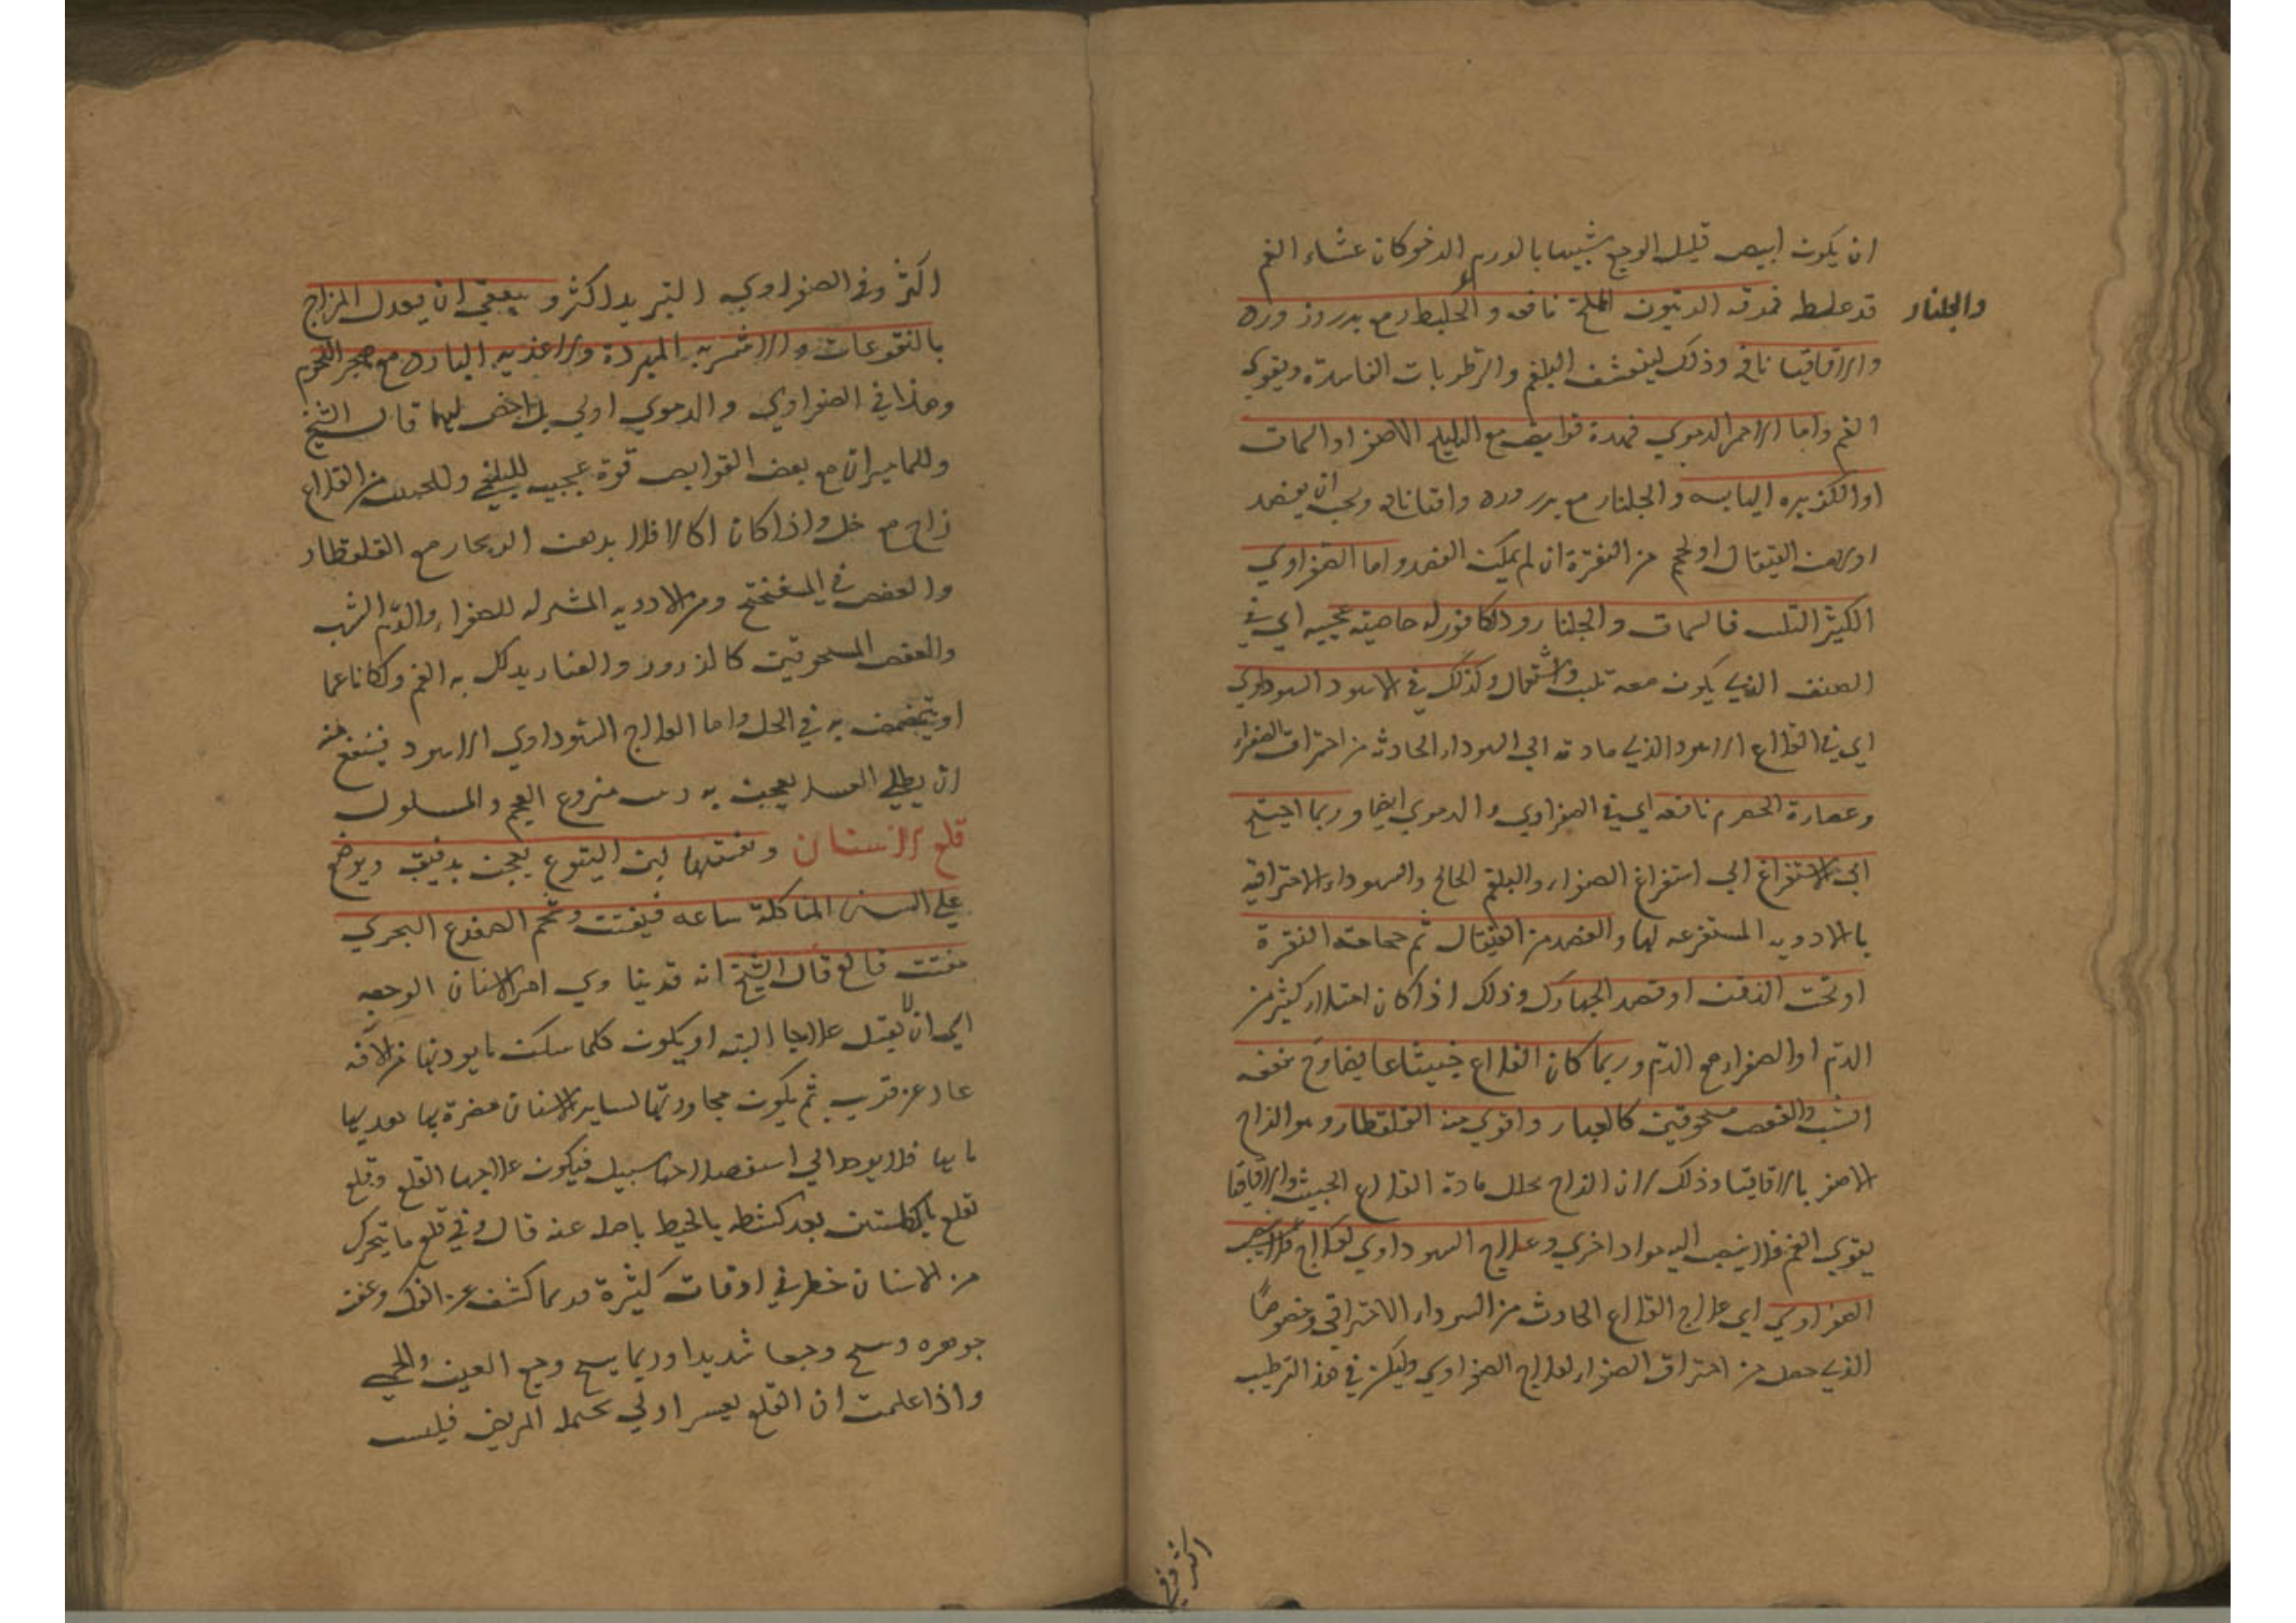 ان يكون ابيض قليل الوجع شبيها بالورم الرخو كان غشاء الفم
والجلنار
قد غلط فمرقه الزيتون المملح نافعه و مع بزر ورد
والاقاقيا نافع وذلك لينشف البلغم والرطوبات الفاسدة ويقوي
الفم واما الاحمر الدموي فهذه قوابض مع الهليلج الاصفر او السماق
او الكزبره اليابسه والجلنار مع بزر ورد واقاقيا ويجب ان يفصد
القيفال او يحجم من النقرة ان لم يمكن الفصد واما الصفراوي
الكثير التلهب فالسماق والجلنار والكافور له خاصيه عجيبه اي في
الصنف الذي يكون معه تلهب واشتعال وكذلك في الاسود السوداوي
اي في القلاع الاسود الذي مادته الي السوداء الحادثه من احتراق الصفراء
وعصارة الحصرم نافعه اي في الصفراوي والدموي ايضا وربما احتيج
الي الاستفراغ الي استفراغ الصفراء والبلغم المالح والسوداء الاحتراقيه
بالادويه المستفرغه لها والفصد من القيفال ثم حجامة النقرة
او تحت الذقن او فصد الجهارك وذلك اذا كان امتلاء كثير من
الدم او الصفراء مع الدم وربما كان القلاع خبيثا عا منفعه
الشب والعفص مسحوقين كالغبار واقوي منه القلقطار وهو الزاج
الاصفر بالاقاقيا وذلك لان الزاج يحلل مادة القلاع الخبيث والاقاقيا
يقوي الفم فلا ينصب اليه مواد اخري وعلاج السوداوي لعلاج
الصفراوي اي علاج القلاع الحادث من السوداء الاحتراقي وخصوصًا
الذي حصل من احتراق الصفراء لعلاج الصفراوي وليكن في هذا الترطيب
اكثر وفي
اكثر وفي الصفراوي التبريد اكثر و ان يعدل المزاج
بالنقوعات والاشربه المبردة والاغذيه البارده مع هجر اللحوم
وهذا في الصفراوي والدموي اولي بل اخص بهما قال الشيخ
وللماميران مع بعض القوابض قوة عجيبه للبلغمي وللخبيث من القلاع
زاج مع خل واذا كان اكالا فلا مع القلقطار
والعفص في الميفختج ومن الادويه المشتركه للصفراء والدم الشب
والعفص المسحوقين كالذرور والغبار يدلك به الفم وكانا عما
او يتمضمض به في الخل واما العلاج السوداوي الاسود فينفع منه
ان يطلي العسل يعجن به منزوع العجم والمسلوك
قلع الاسنان لبن اليتوع يعجن بدقيق ويوضع
علي السن المتاكلة ساعه فيفتت وشحم الضفدع البحري
مفتت قالع قال الشيخ انه قد امر الاسنان الوجعه
اي ان لا يقبل علاجا البته او يكون كلما سكن ما يوذيها من الافه
عاد عن قريب ثم يكون مجاورتها لساير الاسنان مضرة بها
ما بها فلا يوجد الي سبيل فيكون علاجها القلع وقلع
تقلع بالكلبتين بعد كشطه بالخيط عنه قال وفي قلع ما يتحرك
من الاسنان خطر في اوقات كثيرة كشف عن الفك وعفن
جوهره وهيج وجعا شديدا وربما يهيج وجع العين والحمي
واذا علمت ان القلع يعسر المريض فليس